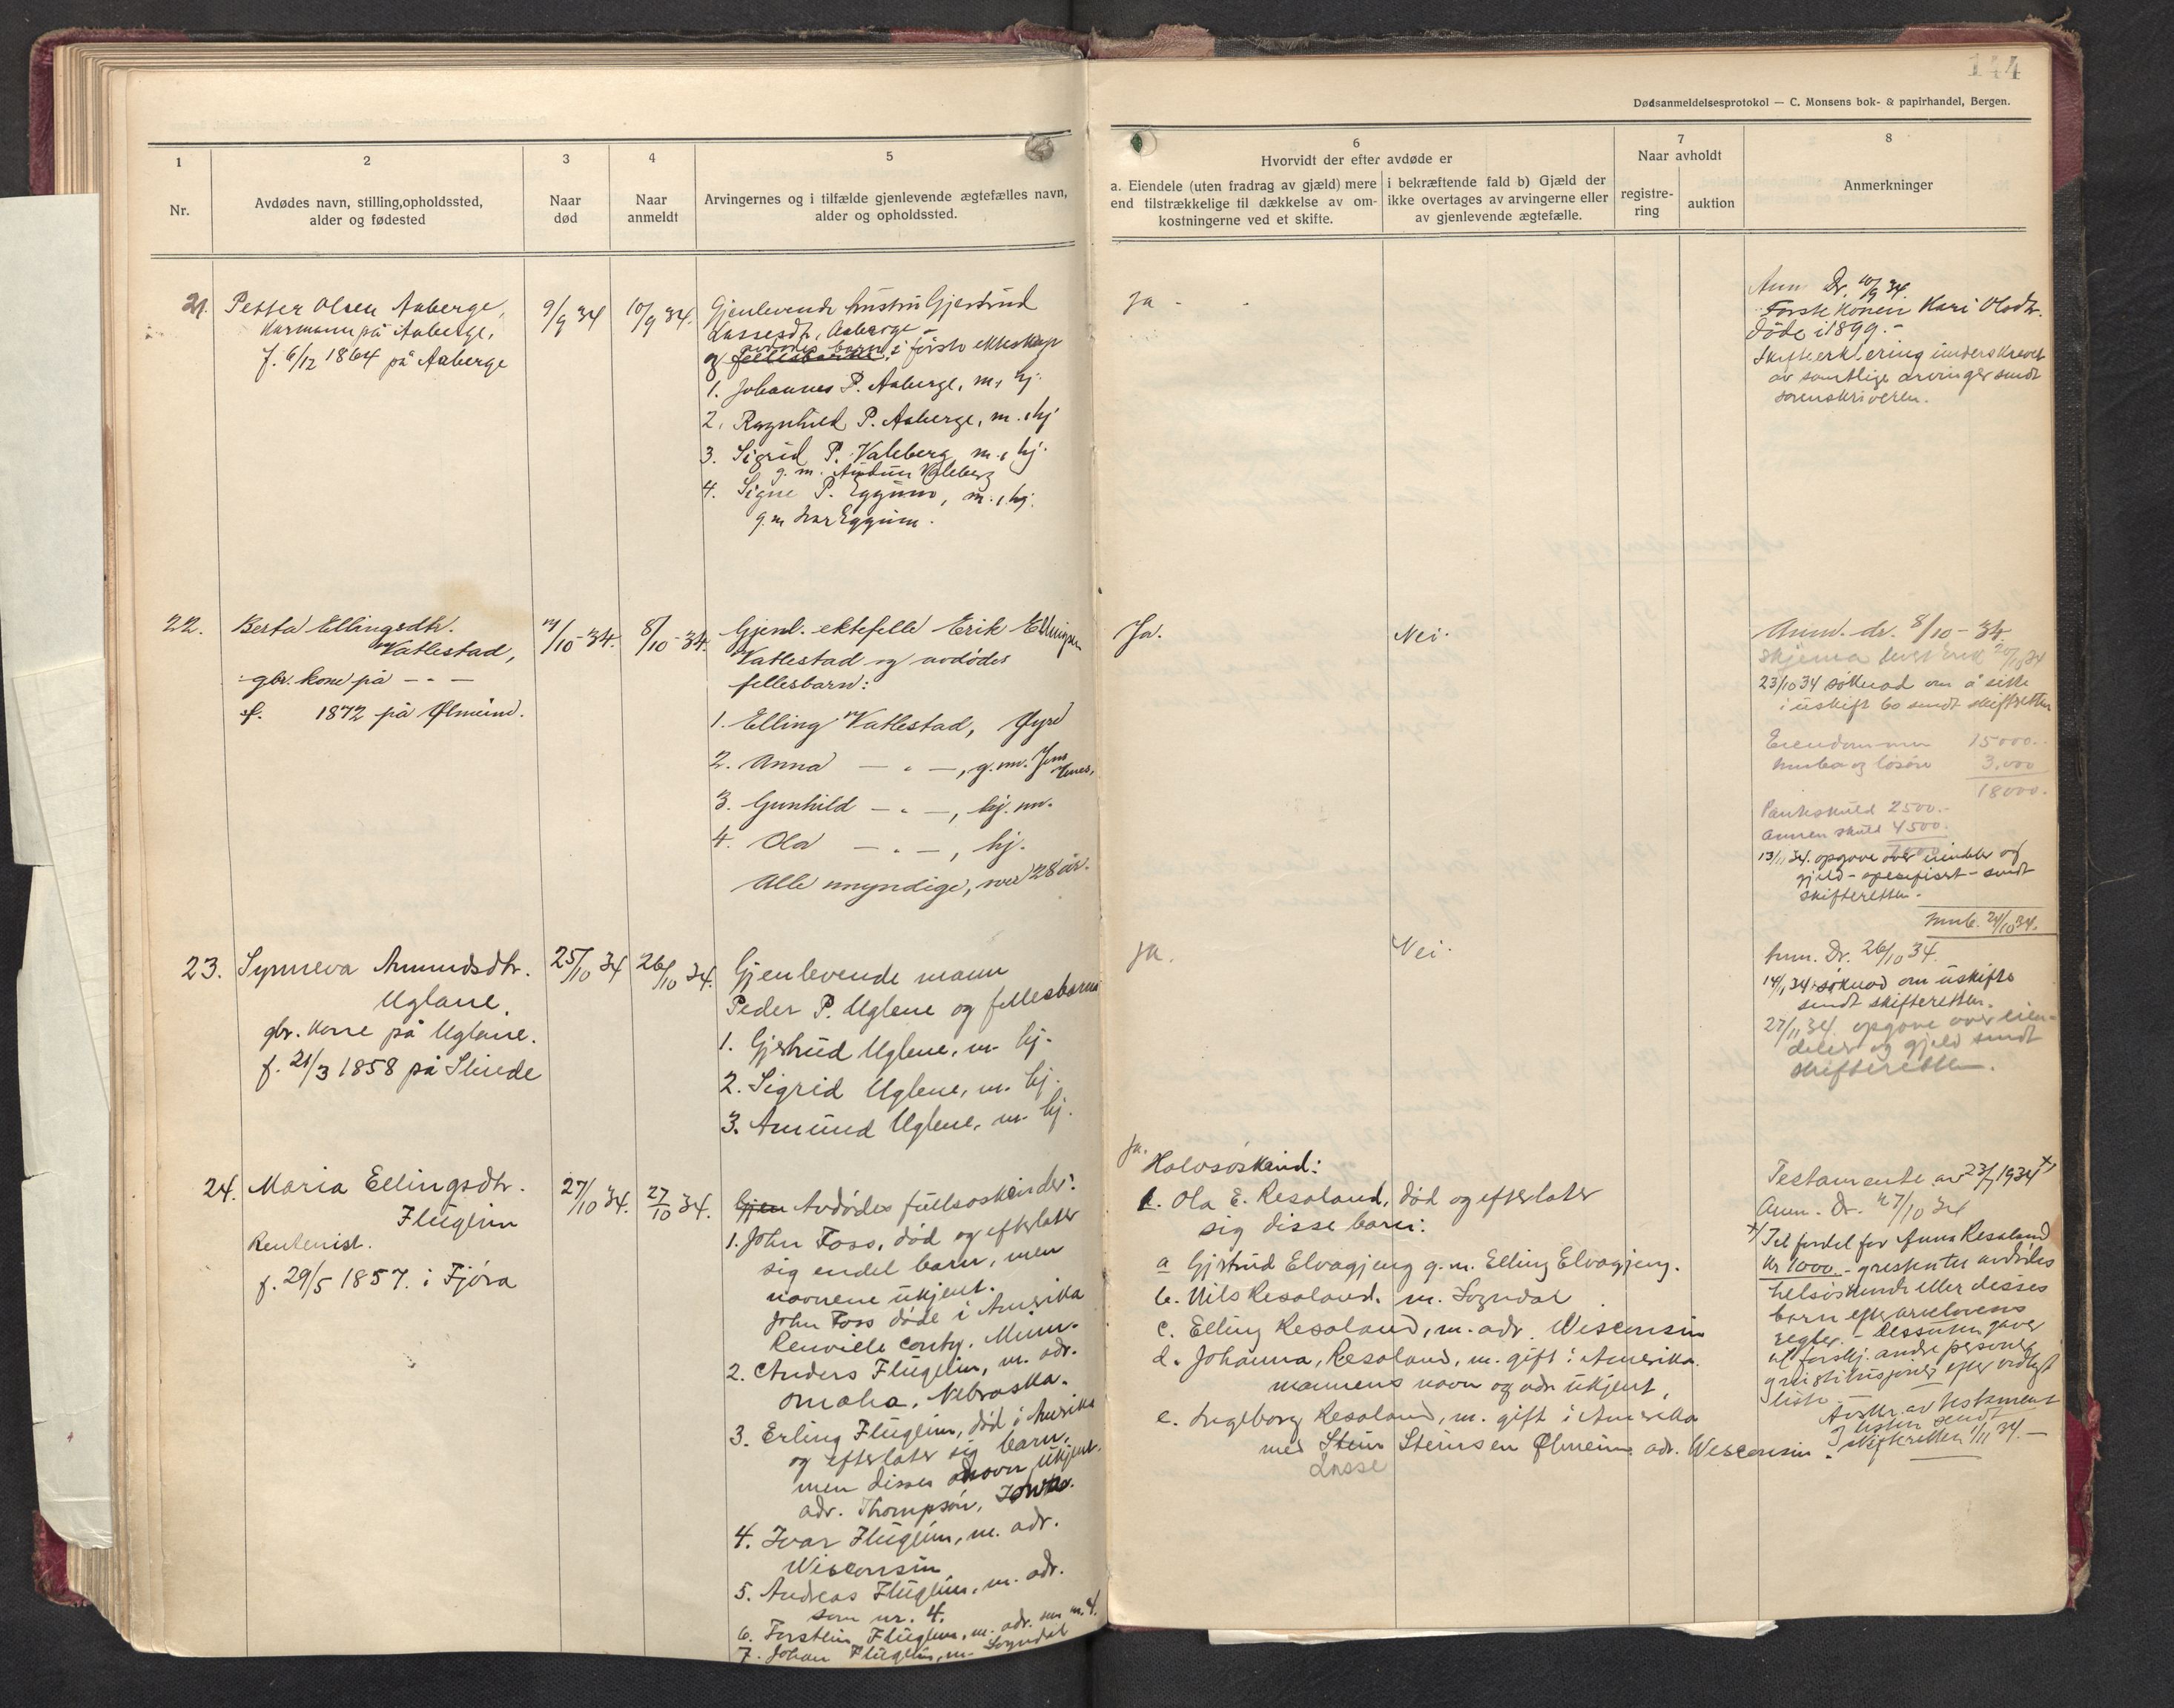 144
Dødsanmeldelsesprotokol — C. Monsens bok- & papirhandel, Bergen.
1
Nr.
2
Avdødes navn, stilling, opholdssted,
alder og fødested
3
Naar
død
4
Naar
anmeldt
5
Arvingernes og i tilfælde gjenlevende ægtefælles navn,
alder og opholdssted.
6
Hvorvidt der efter avdøde er
a. Eiendele (uten fradrag av gjæld) mere
end tilstrækkelige til dækkelse av om-
kostningerne ved et skifte.
i bekræftende fald b) Gjæld der
ikke overtages av arvingerne eller
av gjenlevende ægtefælle.
7
Naar avholdt
registre-
ring
auktion
8
Anmerkninger
21.
Petter Olsen Aaberge,
Kårmann på Aaberge,
f. 6/12 1864 på Aaberge
9/9 34
10/9 34.
Gjenlevende hustru Gjertrud
Lassesdt. Aaberge
og avdødes barn i første ekteskap
1. Johannes P. Aaberge, m. hj.
2. Ragnhild P. Aaberge, m. hj
3. Sigrid P. Valeberg m. hj.
g. m. Audun Valeberg
4. Signe P. Eggum, m. hj.
g. m. Ivar Eggum.
Ja -
Anm. Dr. 10/9 34.
Første konen Kari Olsdtr.
døde i 1899. -
Skifteerklering underskrevet
av samtlige arvinger sendt
sorenskriveren.
22.
Berta Ellingsdtr.
Vatlestad,
gbr. kone på — " —
f. 1872 på Ølmeim.
/10-34.
8/10-34.
Gjenl. ektefelle Erik Ellingsen
Vatlestad og avdødes
fellesbarn:
1. Elling Vatlestad, Øyre
2. Anna — " —, g. m. Jens
3. Gunhild — " —, hj. m.
4. Ola — " —, hj.
Alle myndige, over 28 år.
Ja.
Nei.
Anm. dr. 8/10-34.
skjema
23/10 34 søknad om å sitte
i uskift bo sendt skifteretten
Eiendommen 15000.
innbo og løsøre 3.000
18000.
Panteskuld 2500.-
Annen skuld 4500.
13/11 34. opgave over eiendeler og
gjeld - spesifisert - sendt
skifteretten.
23.
Synneva Amundsdtr.
Uglane.
gbr. kone på Uglane.
f. 21/3 1858 på Slinde
25/10 34
26/10 34.
Gjenlevende mann
Peder P. Uglene og fellesbarna
1. Gjertrud Uglene, m. hj.
2. Sigrid Uglene, m. hj.
3. Amund Uglene, m. hj.
Ja.
Nei.
Anm. Dr. 26/10 34.
14/11 34 søknad om uskifte
sendt skifteretten.
27/11 34. opgave over eien-
deler og gjeld sendt
skifteretten.
24.
Maria Ellingsdtr.
Flugeim
Rentenist.
f. 29/5 1857. i Fjøra
27/10 34.
27/10 34.
Gjen Avdødes fullsøskender:
1. John Foss, død og efterlater
sig endel barn, men
navnene ukjent.
John Foss døde i Amerika
Renville conty. Minn.
2. Anders Flugeim, m. adr.
Omaha, Nebraska.
3. Erling Flugeim, død i Amerika
og efterlater sig barn,
men disses navn ukjent.
adr. Thompson, Iowa.
4. Ivar Flugeim, m. adr.
Wisconsin
5. Andreas Flugeim, m. adr.
som nr. 4.
6. Torstein Flugeim, m. adr. som nr. 4.
7. Johan Flugeim, m. Sogndal
Ja.
Halvsøskend:
1. Ola E. Resaland, død og efterlater
sig disse barn:
a Gjertrud Elvagjeng g. m. Elling Elvagjeng.
b. Nils Resaland. m. Sogndal
c. Elling Resaland, m. adr. Wisconsin
d. Johanna, Resaland, m. gift i Amerika.
mannens navn og adr ukjent,
e. Ingeborg Resaland, m. gift i Amerika
med Stein Steinsen Ølmeim adr. Wisconsin.
Lasse
Testamente av 23/1 1934 x)
Anm. Dr. 27/10 34
x) Til fordel for Anna Resaland
kr 1000.- avdødes
helsøskende eller disses
barn efter arvelovens
regler. - Dessuten gaver
til forskj. andre personer
institusjoner efter vedlagt
liste.
Avskr. av testament
listen sendt
skifteretten 1/11 34. —